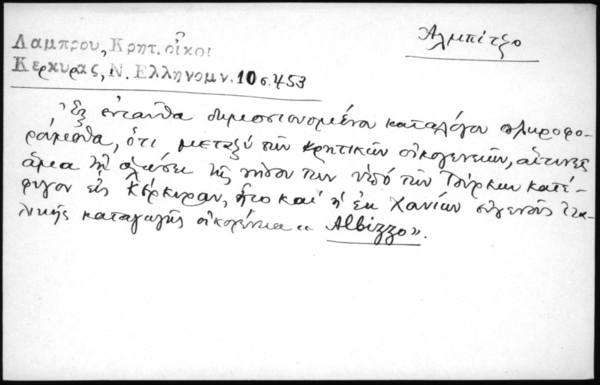 Ἀλμπίτζο
Λαμπρου, Κρητ. οἶκοι
Κερκυρας, Ν. Ελληνομν. 10 σ. 453
Ἐξ ἐνταῦθα δημοσιευομένου καταλόγου πληροφο-
ρούμεθα, ὅτι μεταξὺ τῶν κρητικῶν οἰκογενειῶν, αἵτινες
ἅμα τῇ ἁλώσει τῆς νήσου των ὑπὸ τῶν Τούρκων κατέ-
φυγον εἰς Κέρκυραν, ἦτο καὶ ἡ ἐκ Χανίων εὐγενοῦς ἰτα-
λικῆς καταγωγῆς οἰκογένεια « Albizzo».